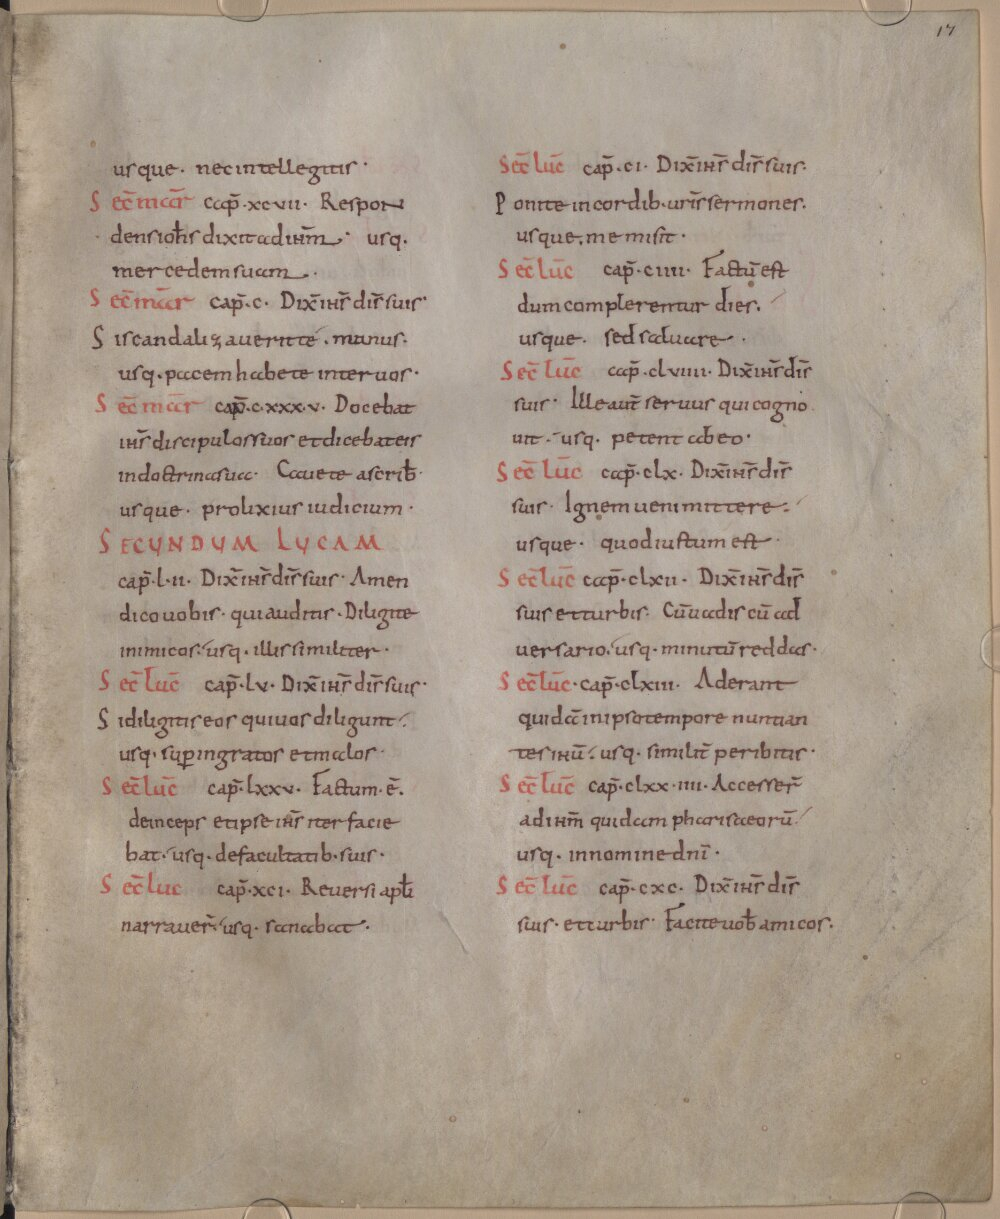 17
usque. nec intellegitis.
Sec̄ mar̄ cap̄. xcvii. Respon
dens ioħis dixit ad ihm̄. usq.
mercedem suam.
Sec̄ mar̄ cap̄. c. Dix̄ ihs̄ dis̄ suis.
Si scandalizaverit te. manus.
usq. pacem habete inter vos.
Sec̄ mar̄ cap̄. c.xxx.v. Docebat
ihs̄ discipulos suos et dicebat eis
in doctrina sua. Cavete a scrib̄.
usque. prolixius iudicium.
SECUNDUM LUCAM
cap̄. l.ii. Dix̄ ihs̄ dis̄ suis. Amen
dico vobis. qui auditis. Diligite
inimicos. usq. illis similiter.
Sec̄ luc̄ cap̄. lv. Dix̄ ihs̄ dis̄ suis.
Si diligitis eos qui vos diligunt.
usq. sup̄ ingratos et malos.
Sec̄ luc̄ cap̄. lxxv. Factum. ē.
deinceps et ipse ihs̄ iter facie
bat. usq. de facultatib. suis.
Sec̄ luc cap̄. xci. Reversi apłi
narraver̄. usq. sanabat.
Sec̄ luc̄ cap̄. ci. Dix̄ ihs̄ dis̄ suis.
Ponite in cordib. vris̄ sermones.
usque. me misit.
Sec̄ luc̄ cap̄. ciiii. Factū est
dum complerentur dies.
usque. sed salvare.
Sec̄ luc̄ cap̄. clviiii. Dix̄ ihs̄ dis̄
suis. Ille aut̄ servus qui cogno
vit. usq. petent ab eo.
Sec̄ luc̄ cap̄. clx. Dix̄ ihs̄ dis̄
suis. Ignem veni mittere.
usque. quod iustum est.
Sec̄ luc̄ cap̄. clxii. Dix̄ ihs̄ dis̄
suis et turbis. Cū vadis cū ad
versario. usq. minutū reddas.
Sec̄ luc̄. cap̄. clxiii. Aderant
quidā in ipso tempore nuntian
tes ihū. usq. similit̄ peribitis.
Sec̄ luc̄ cap̄. clxx.iiii. Accesser̄
ad ihm̄ quidam pharisaeorū.
usq. in nomine dnī.
Sec̄ luc̄ cap̄. cxc. Dix̄ ihs̄ dis̄
suis. et turbis. Facite vob̄ amicos.